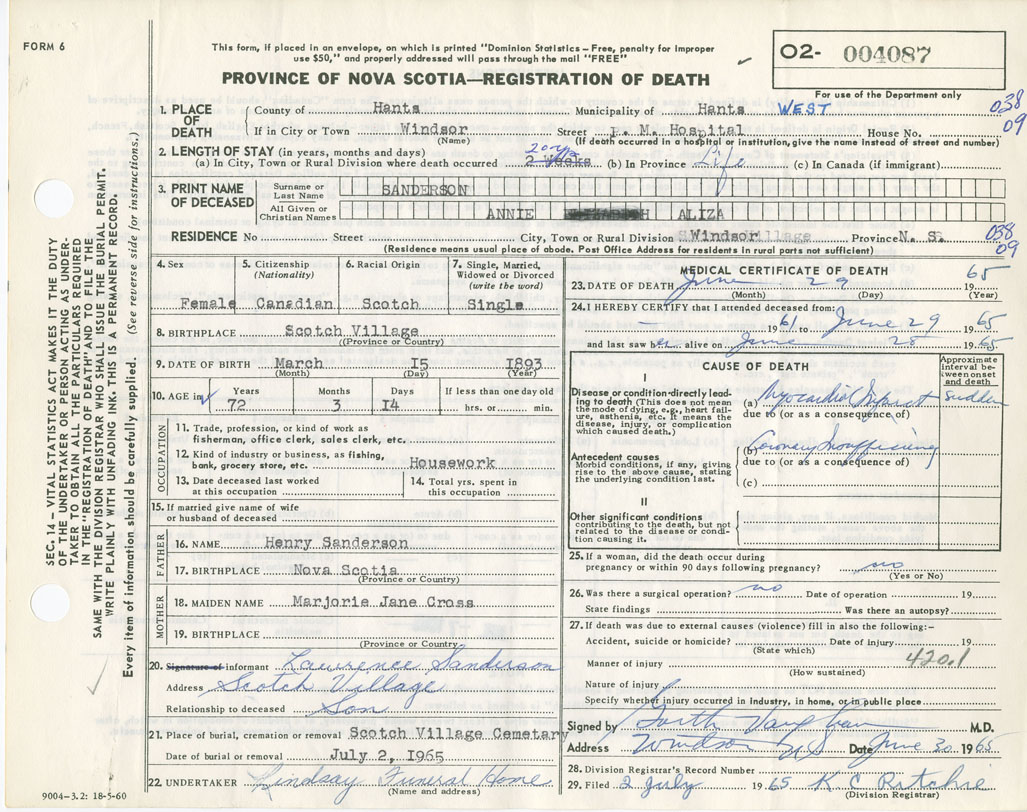 FORM 6
This form, if placed in an envelope, on which is printed "Dominion Statistics – Free, penalty for improper
use $50," and properly addressed will pass through the mail "FREE"
O2- 004087
PROVINCE OF NOVA SCOTIA—REGISTRATION OF DEATH
For use of the Department only
1. PLACE OF DEATH County of Hants Municipality of Hants WEST 038
If in City or Town Windsor Street P. M. Hospital House No. 09
(Name) (If death occurred in a hospital or institution, give the name instead of street and number)
2. LENGTH OF STAY (in years, months and days)
(a) In City, Town or Rural Division where death occurred 2 Weeks (b) In Province Life (c) In Canada (if immigrant)
3. PRINT NAME OF DECEASED Surname or Last Name SANDERSON
All Given or Christian Names ANNIE ALIZA
RESIDENCE No Street City, Town or Rural Division Windsor Province N. S. 038
(Residence means usual place of abode. Post Office Address for residents in rural parts not sufficient) 09
4. Sex 5. Citizenship (Nationality) 6. Racial Origin 7. Single, Married, Widowed or Divorced (write the word)
Female Canadian Scotch Single
8. BIRTHPLACE Scotch Village
(Province or Country)
9. DATE OF BIRTH March 15 1893
(Month) (Day) (Year)
10. AGE in Years Months Days If less than one day old
72 3 14 hrs. or min.
OCCUPATION
11. Trade, profession, or kind of work as
fisherman, office clerk, sales clerk, etc.
12. Kind of industry or business, as fishing,
bank, grocery store, etc. Housework
13. Date deceased last worked at this occupation 14. Total yrs. spent in this occupation
15. If married give name of wife
or husband of deceased
FATHER
16. NAME Henry Sanderson
17. BIRTHPLACE Nova Scotia
(Province or Country)
MOTHER
18. MAIDEN NAME Marjorie Jane Cross
19. BIRTHPLACE
(Province or Country)
20. Signature of informant Lawrence Sanderson
Address Scotch Village
Relationship to deceased Son
21. Place of burial, cremation or removal Scotch Village Cemetary
Date of burial or removal July 2, 1965
22. UNDERTAKER Lindsay Funeral Home
(Name and address)
9004-3.2: 18-5-60
MEDICAL CERTIFICATE OF DEATH
23. DATE OF DEATH June 29 1965
(Month) (Day) (Year)
24. I HEREBY CERTIFY that I attended deceased from:
— 1961 to June 29 1965
and last saw her alive on June 28 1965
CAUSE OF DEATH
Approximate interval between onset and death
I
Disease or condition directly leading to death (This does not mean the mode of dying, e.g., heart failure, asthenia, etc. It means the disease, injury, or complication which caused death.)
(a) Myocardial Infarct sudden
due to (or as a consequence of)
(b) Coronary Insufficiency
Antecedent causes
Morbid conditions, if any, giving rise to the above cause, stating the underlying condition last.
due to (or as a consequence of)
(c)
II
Other significant conditions
contributing to the death, but not related to the disease or condition causing it.
25. If a woman, did the death occur during
pregnancy or within 90 days following pregnancy? no
(Yes or No)
26. Was there a surgical operation? no Date of operation 19
State findings Was there an autopsy?
27. If death was due to external causes (violence) fill in also the following:–
Accident, suicide or homicide? Date of injury 19
(State which)
Manner of injury 420.1
(How sustained)
Nature of injury
Specify whether injury occurred in industry, in home, or in public place
Signed by Garth Vaughan M.D.
Address Windsor NS Date June 30 1965
28. Division Registrar's Record Number
29. Filed 2 July 1965 K C Ritchie
(Division Registrar)
SEC. 14 – VITAL STATISTICS ACT MAKES IT THE DUTY
OF THE UNDERTAKER OR PERSON ACTING AS UNDER-
TAKER TO OBTAIN ALL THE PARTICULARS REQUIRED
IN THE "REGISTRATION OF DEATH" AND TO FILE THE
SAME WITH THE DIVISION REGISTRAR WHO SHALL ISSUE THE BURIAL PERMIT.
WRITE PLAINLY WITH UNFADING INK. THIS IS A PERMANENT RECORD.
Every item of information should be carefully supplied. (See reverse side for instructions.)